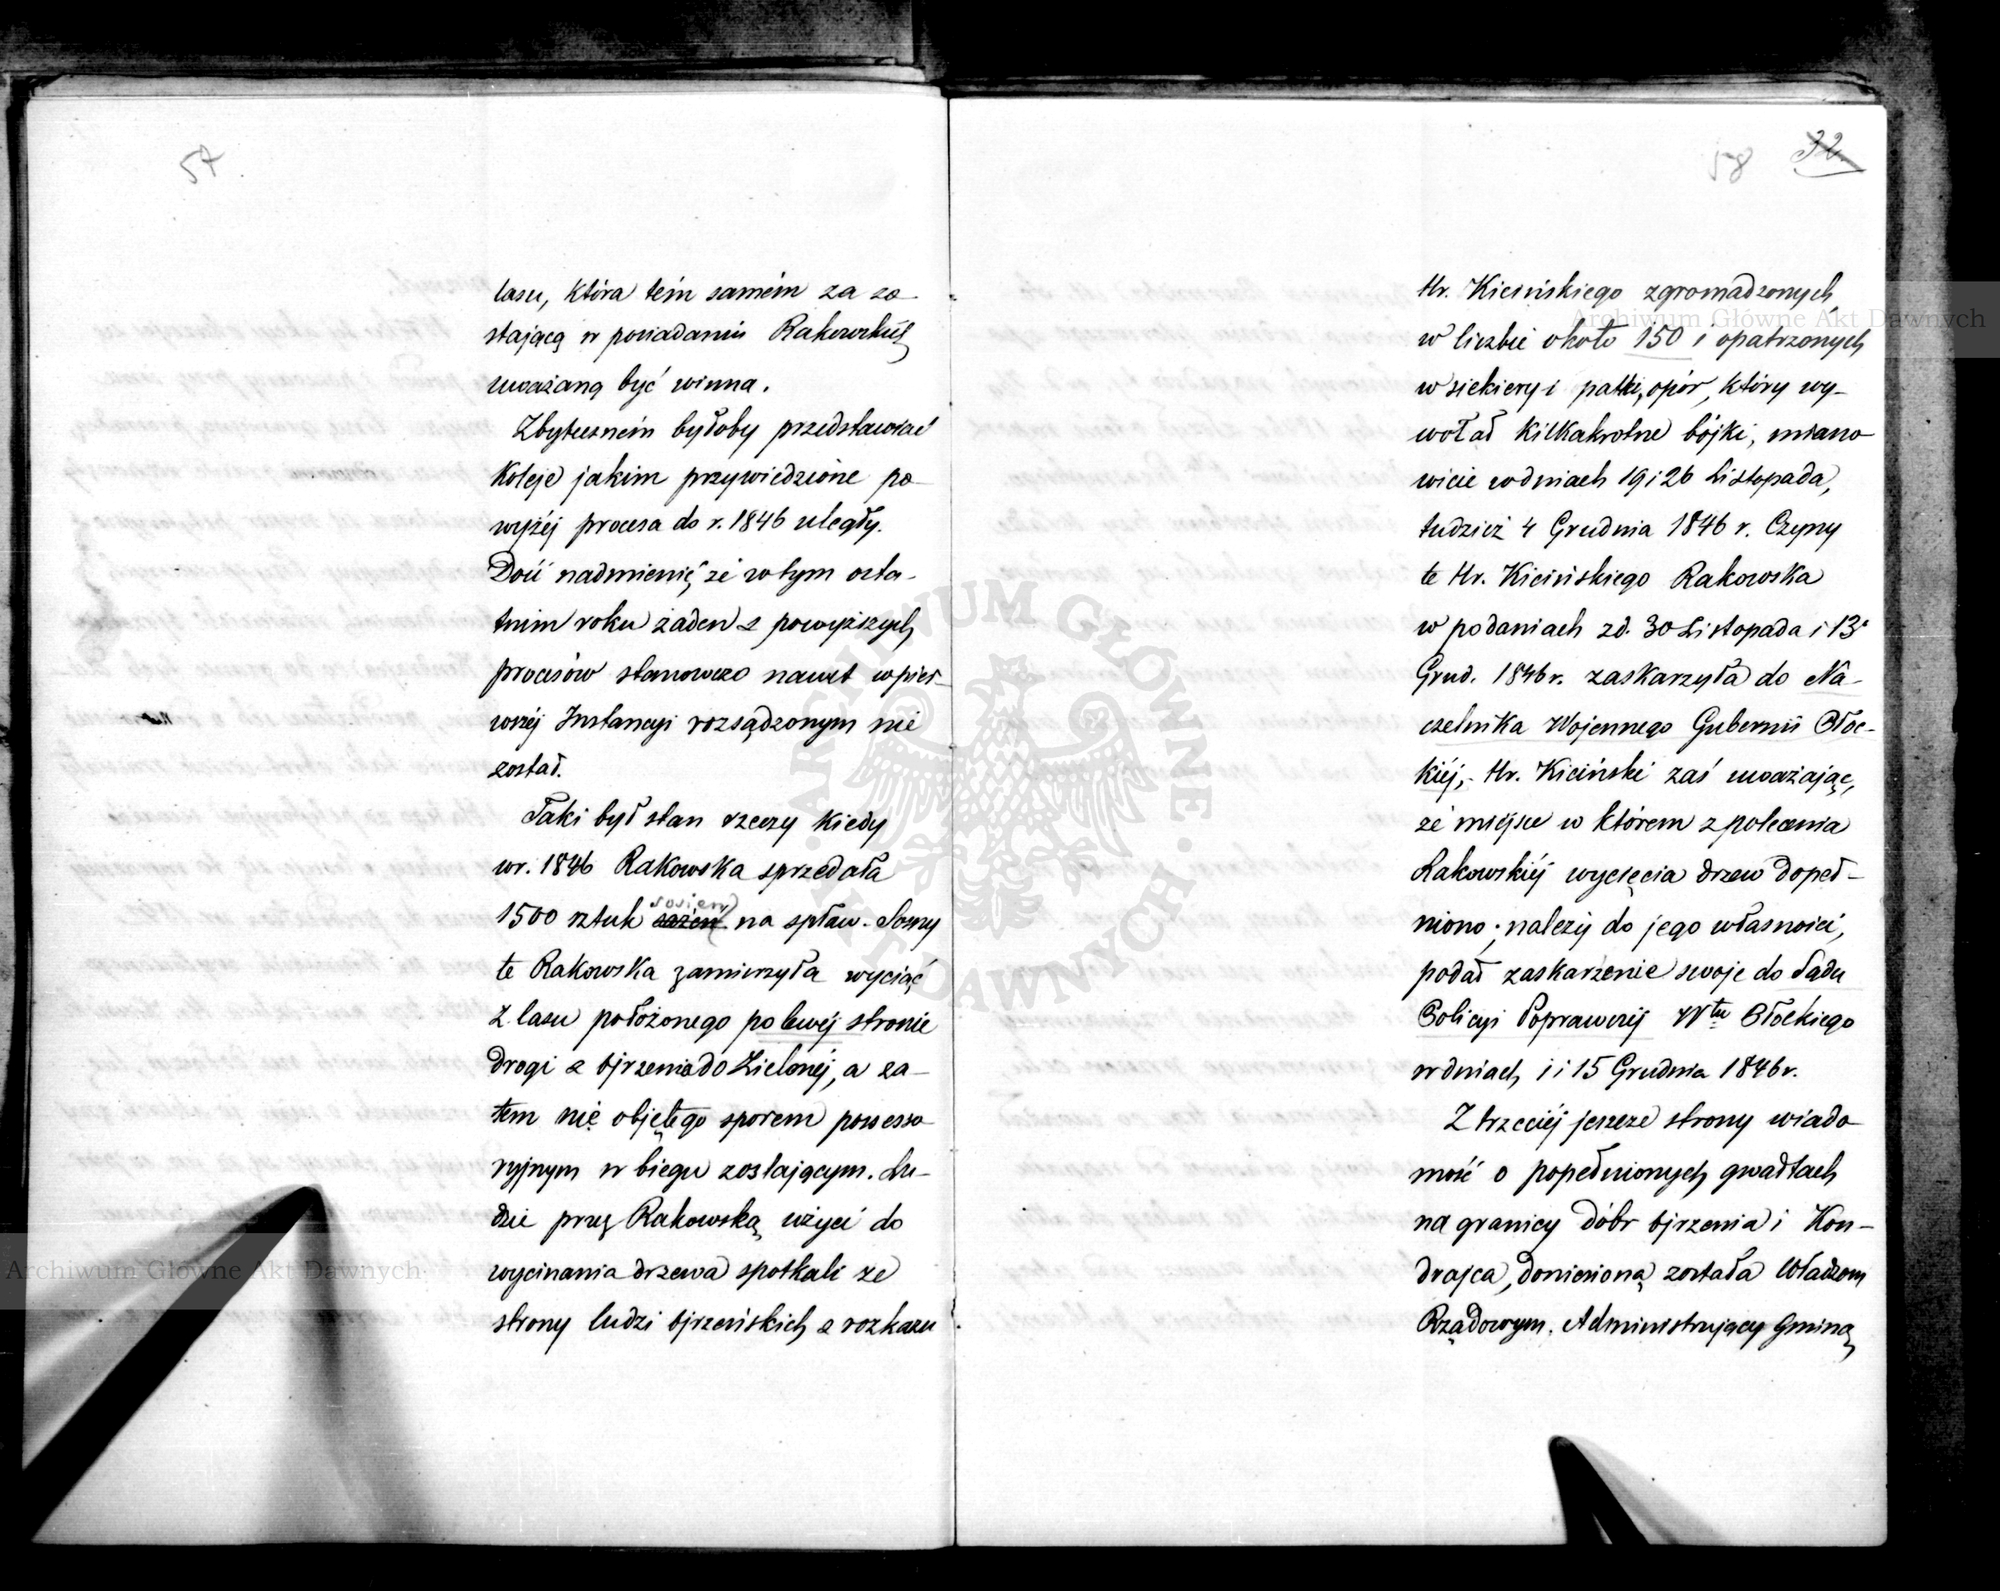 57
lasu, która tém samém za zo-
stającą w posiadaniu Rakowskiéj
uważaną być winna.
Zbyteczném byłoby przedstawiać
Koleje jakim przywiedzione po-
wyżéj procesa do r. 1846 uległy.
Dość nadmienić, że w tym osta-
tnim roku żaden z powyższych
procesów stanowczo nawet w pier-
wszéj Instancyi rozsądzonym nie
został.
Taki był stan rzeczy Kiedy
w r. 1846 Rakowska sprzedała
sosien
1500 sztuk sążen na spław. Sosny
te Rakowska zamierzyła wyciąć
z lasu położonego po lewéj stronie
drogi z Ojrzenia do Zielonéj, a za-
tem nie objętego sporem posesso-
ryjnym w biegu zostającym. Lu-
dzie przez Rakowską użyci do
wycinania drzewa spotkali ze
strony ludzi Ojrzeńskich z rozkazu
58 32
Hr. Kicińskiego zgromadzonych
w liczbie około 150 i opatrzonych
w siekiery i pałki, opór, który wy-
wołał kilkakrotne bójki, miano-
wicie w dniach 19 i 26 Listopada,
tudzież 4 Grudnia 1846 r. Czyny
te Hr. Kicińskiego Rakowska
w podaniach z d. 30 Listopada i 13
Grud. 1846 r. zaskarzyła do Na-
czelnika Wojennego Gubernii Płoc-
kiéj, Hr. Kiciński zaś uważając,
że miejsce w którem z polecenia
Rakowskiéj wycięcia drzew dopeł-
niono, należy do jego własności,
podał zaskarżenie swoje do Sądu
Policyi Poprawczéj Wtu Płockiego
w dniach 1 i 15 Grudnia 1846 r.
Z trzeciéj jeszcze strony wiado-
mość o popełnionych gwałtach
na granicy dóbr Ojrzenia i Kon-
drajca, doniesioną została Władzom
Rządowym. Administrujący Gminą
Archiwum Główne Akt Dawnych
Archiwum Główne Akt Dawnych
ARCHIWUM GŁÓWNE AKT DAWNYCH